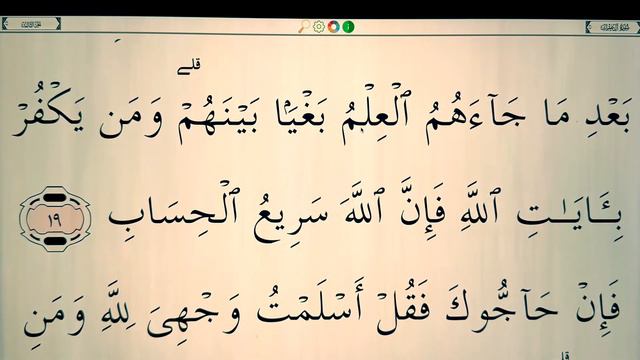 بَعْدِ مَا جَآءَهُمُ ٱلْعِلْمُ بَغْيًۢا بَيْنَهُمْ ۗ وَمَن يَكْفُرْ
بِـَٔايَـٰتِ ٱللَّهِ فَإِنَّ ٱللَّهَ سَرِيعُ ٱلْحِسَابِ ١٩
فَإِنْ حَآجُّوكَ فَقُلْ أَسْلَمْتُ وَجْهِىَ لِلَّهِ وَمَنِ